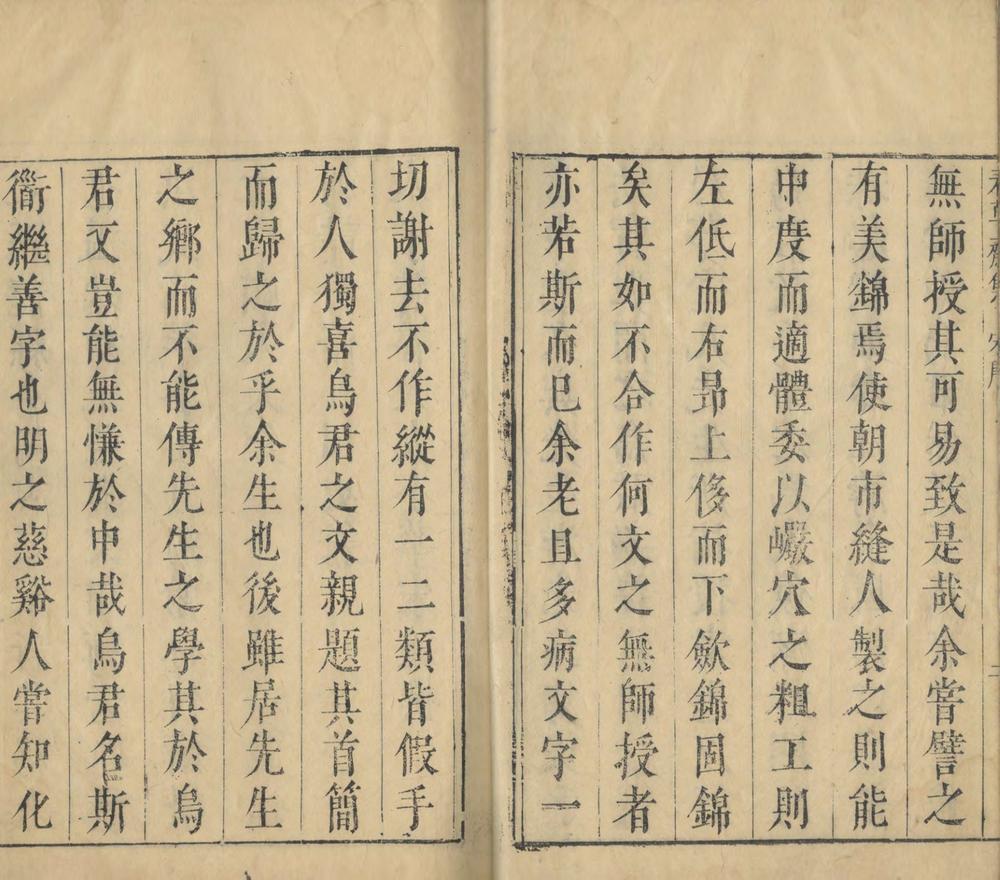 無師授其可易致是哉余嘗譬之
有美錦焉使朝市縫人製之則能
中度而適體委以巖穴之粗工則
左低而右昻上侈而下歛錦固錦
矣其如不合作何文之無師授者
亦若斯而已余老且多病文字一
切謝去不作縱有一二類皆假手
於人獨喜烏君之文親題其首簡
而歸之於乎余生也後雖居先生
之鄉而不能傳先生之學其於烏
君文豈能無慊於中哉烏君名斯
衜繼善字也明之慈谿人嘗知化